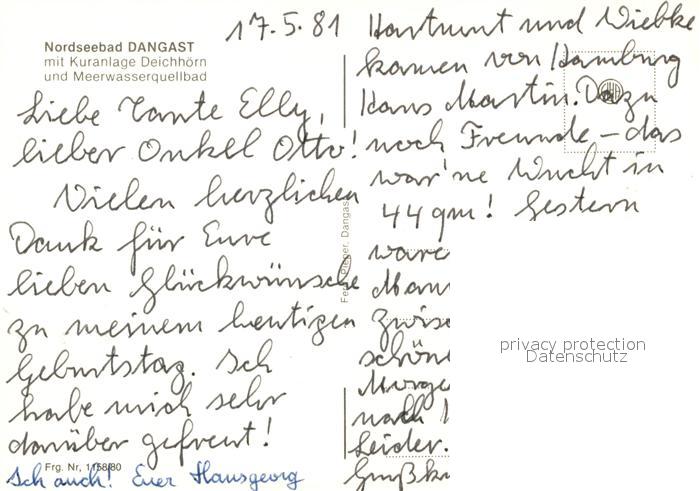 17.5.81
Nordseebad DANGAST
mit Kuranlage Deichhörn
und Meerwasserquellbad
Liebe Tante Elly,
lieber Onkel Otto!
Vielen herzlichen
Dank für Eure
lieben Glückwünsche
zu meinem heutigen
Geburtstag. Ich
habe mich sehr
darüber gefreut!
Frg. Nr, 1158/80
Ich auch! Euer Hansgeorg
Hartmut und Wiebke
kamen von Hamburg
Hans Martin. Dazu
noch Freunde – das
war 'ne Wucht in
44 qm! Gestern
ware
Mann
zwisc
schöne
Morge
nach
Leider.
privacy protection
Datenschutz